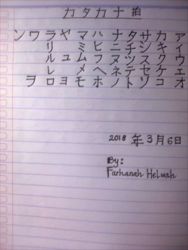 カタカナ拍
ンワラヤマハナタサカア
リミヒニチシキイ
ルユムフヌツスクウ
レメヘネテセケエ
ヲロヨモホノトソコオ
2018 年3月6日
By:
Farhaneh